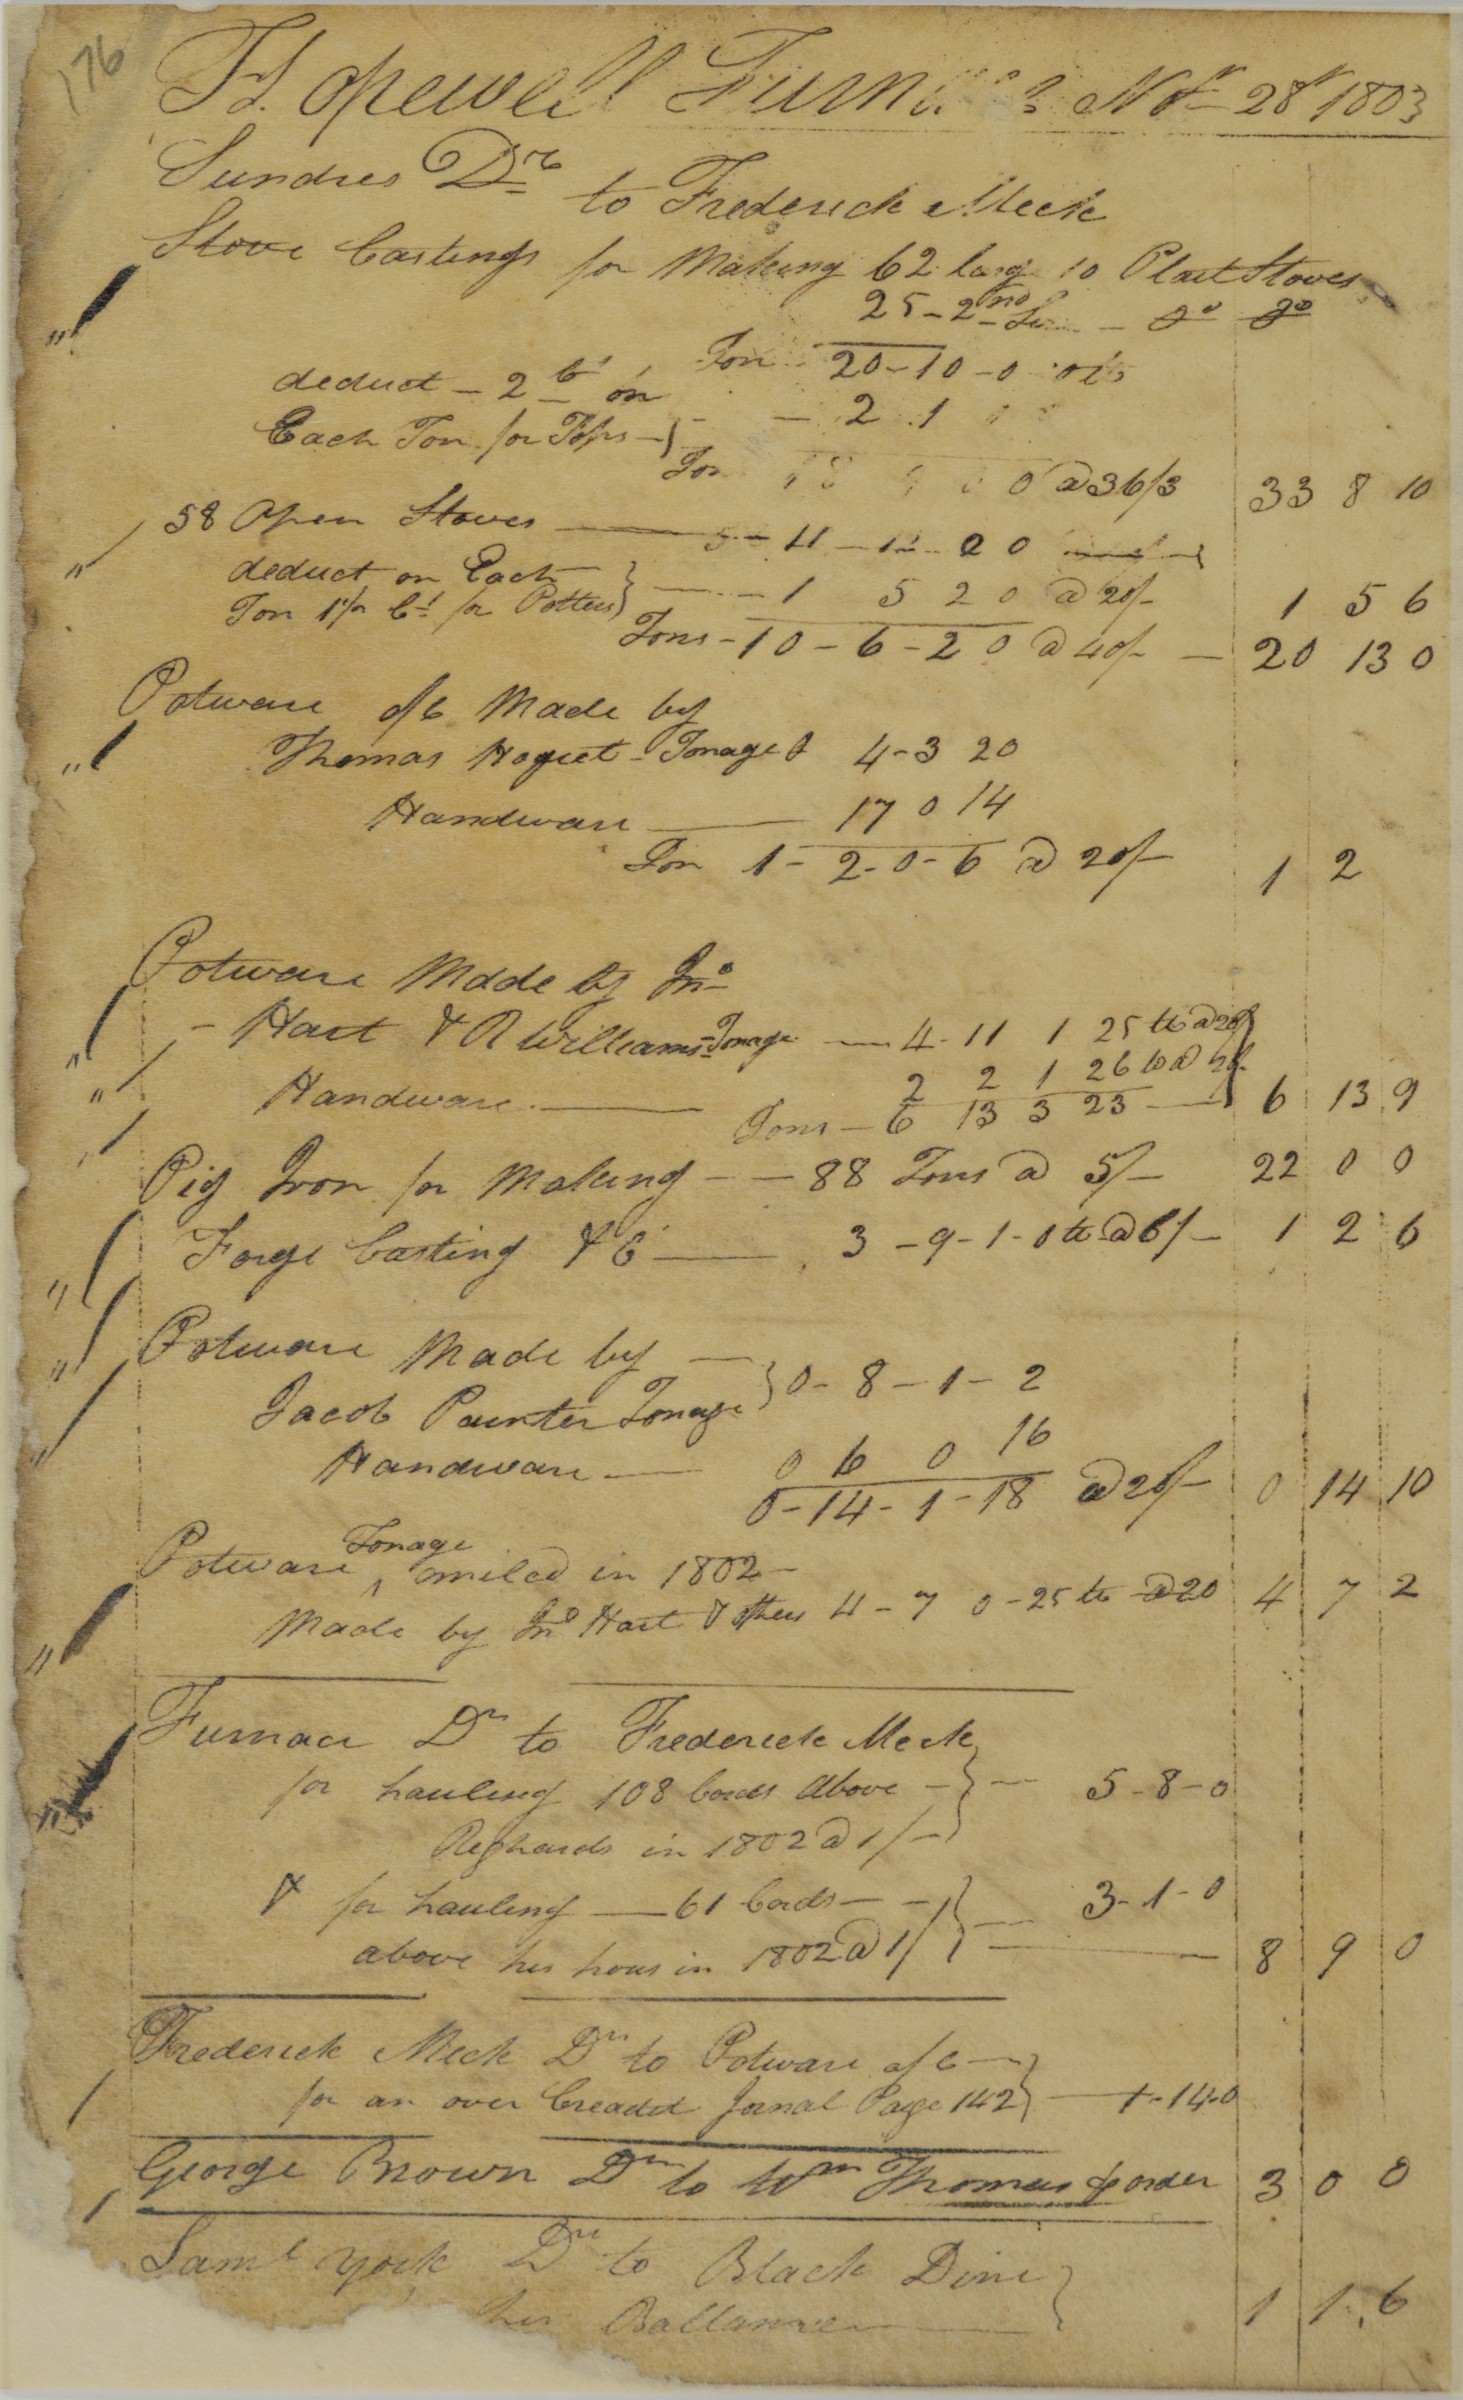 176
Hopewell Furnace Nor 28th 1803
Sundres Drs to Frederick Meck
Stove Castings for Making 62 larg 10 Plait Stoves
25 - 2nd - do do
Ton 20 - 10 - 0
deduct - 2 Ct on
Each Ton for Tops - } - - 2 1
Ton 0 @ 36/3 33 8 10
58 Open Stoves - 11 - 12 - 2 0
deduct on Each } - 1 5 2 0 @ 20/- 1 5 6
Ton Ct for Potters }
Tons - 10 - 6 - 2 0 @ 40/- - 20 13 0
Potware &c Made by
Thomas Hoguet - Tonage 4 - 3 20
Handware 17 0 14
Ton 1 - 2 - 0 - 6 @ 20/- 1 2
Potware Made by Jno
- Hart & R Williams - Tonage - 4 - 11 1 25 lb @ 20/ }
Handware. 2 2 1 26 lb @ 20/- }
Tons - 6 13 3 23 6 13 9
Pig Iron for Making - - 88 Tons @ 5/- 22 0 0
Forge Casting &C 3 - 9 - 1 - 0 lb @ 6/- 1 2 6
Potware Made by - } 0 - 8 - 1 - 2
Jacob Painter Tonage }
Handware 0 6 0 16
0 - 14 - 1 - 18 @ 20/- 0 14 10
Tonage
Potware ^ omiled in 1802 -
Made by Jno Hart & others 4 - 7 0 - 25 lb @ 20 4 7 2
Furnace Dr to Frederick Meck
for hauling 108 Cords Above - } - 5 - 8 - 0
Reghards in 1802 @ 1/- }
& for hauling - 61 Cords - - } 3 - 1 - 0
above his hous in 1802 @ 1/ } 8 9 0
Frederick Meck Dr to Potware &c - }
for an over Creadit Jornal Page 142 } 1 - 14 - 0
George Brown Dr to Wm Thomas p order 3 0 0
Saml York Dr to Black Dine }
his Ballance } 1 1 6